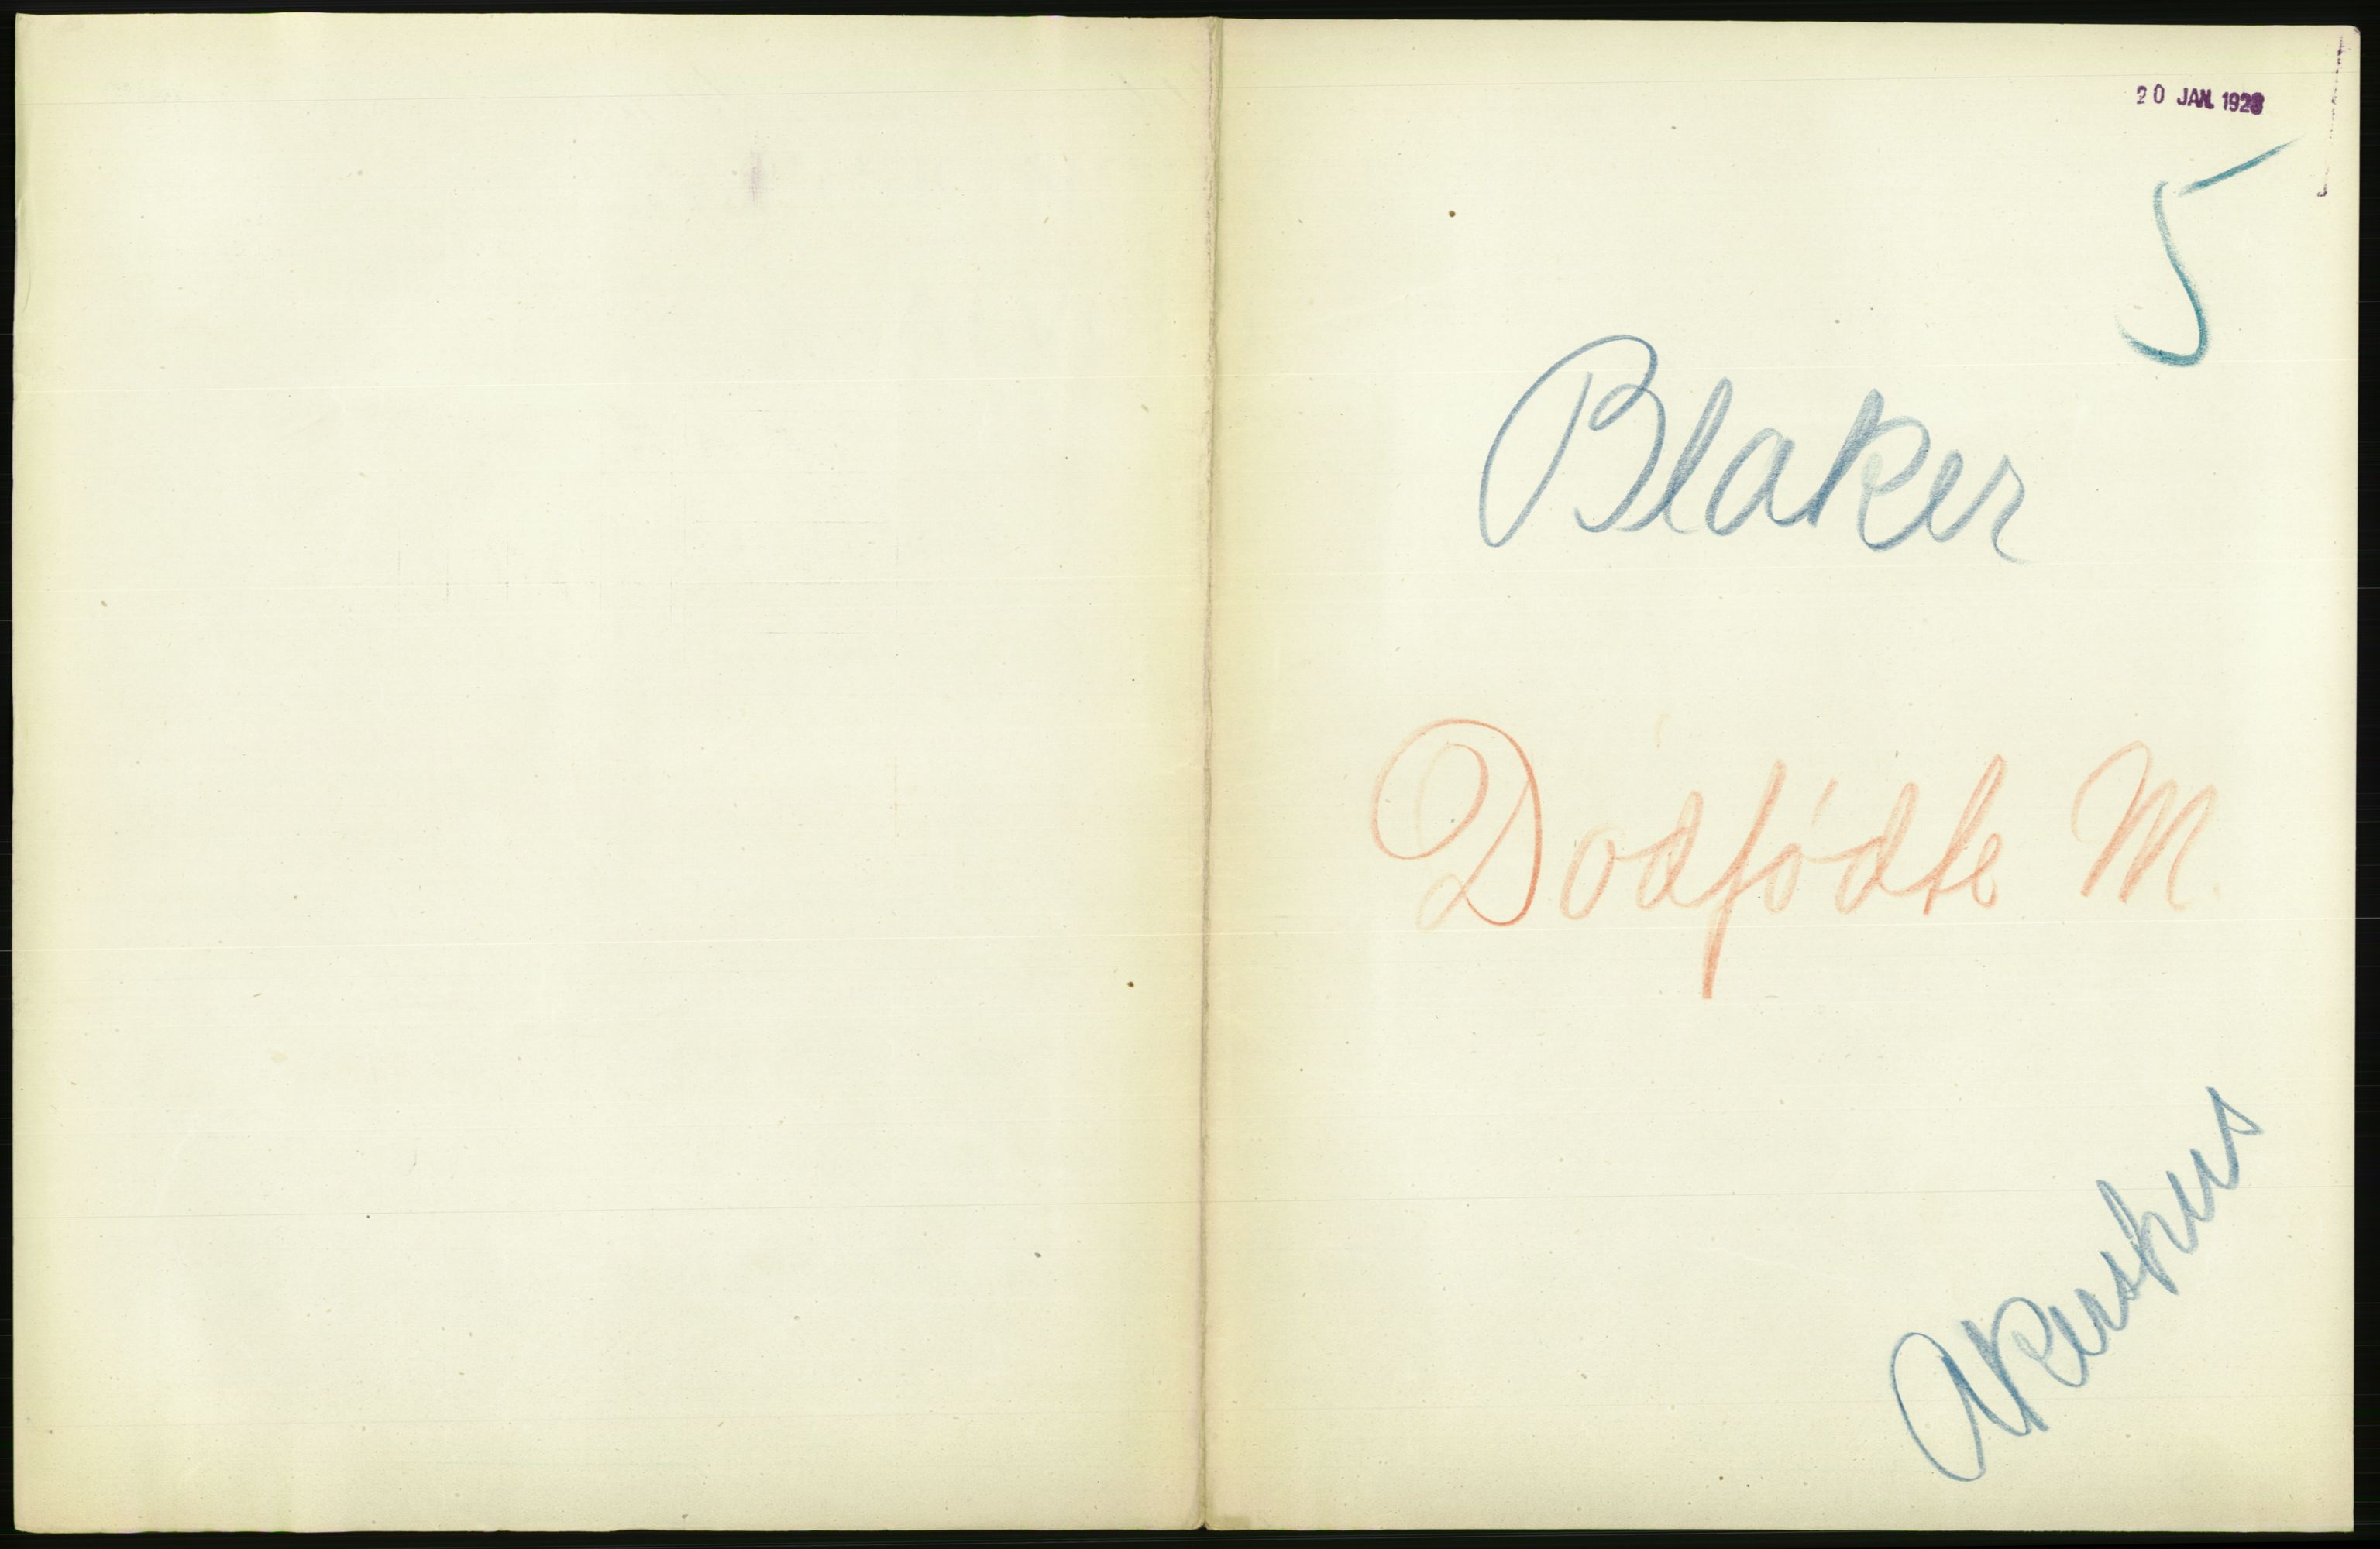 20 JAN. 1928
5
Blaker
Dødfødte M.
Akershus